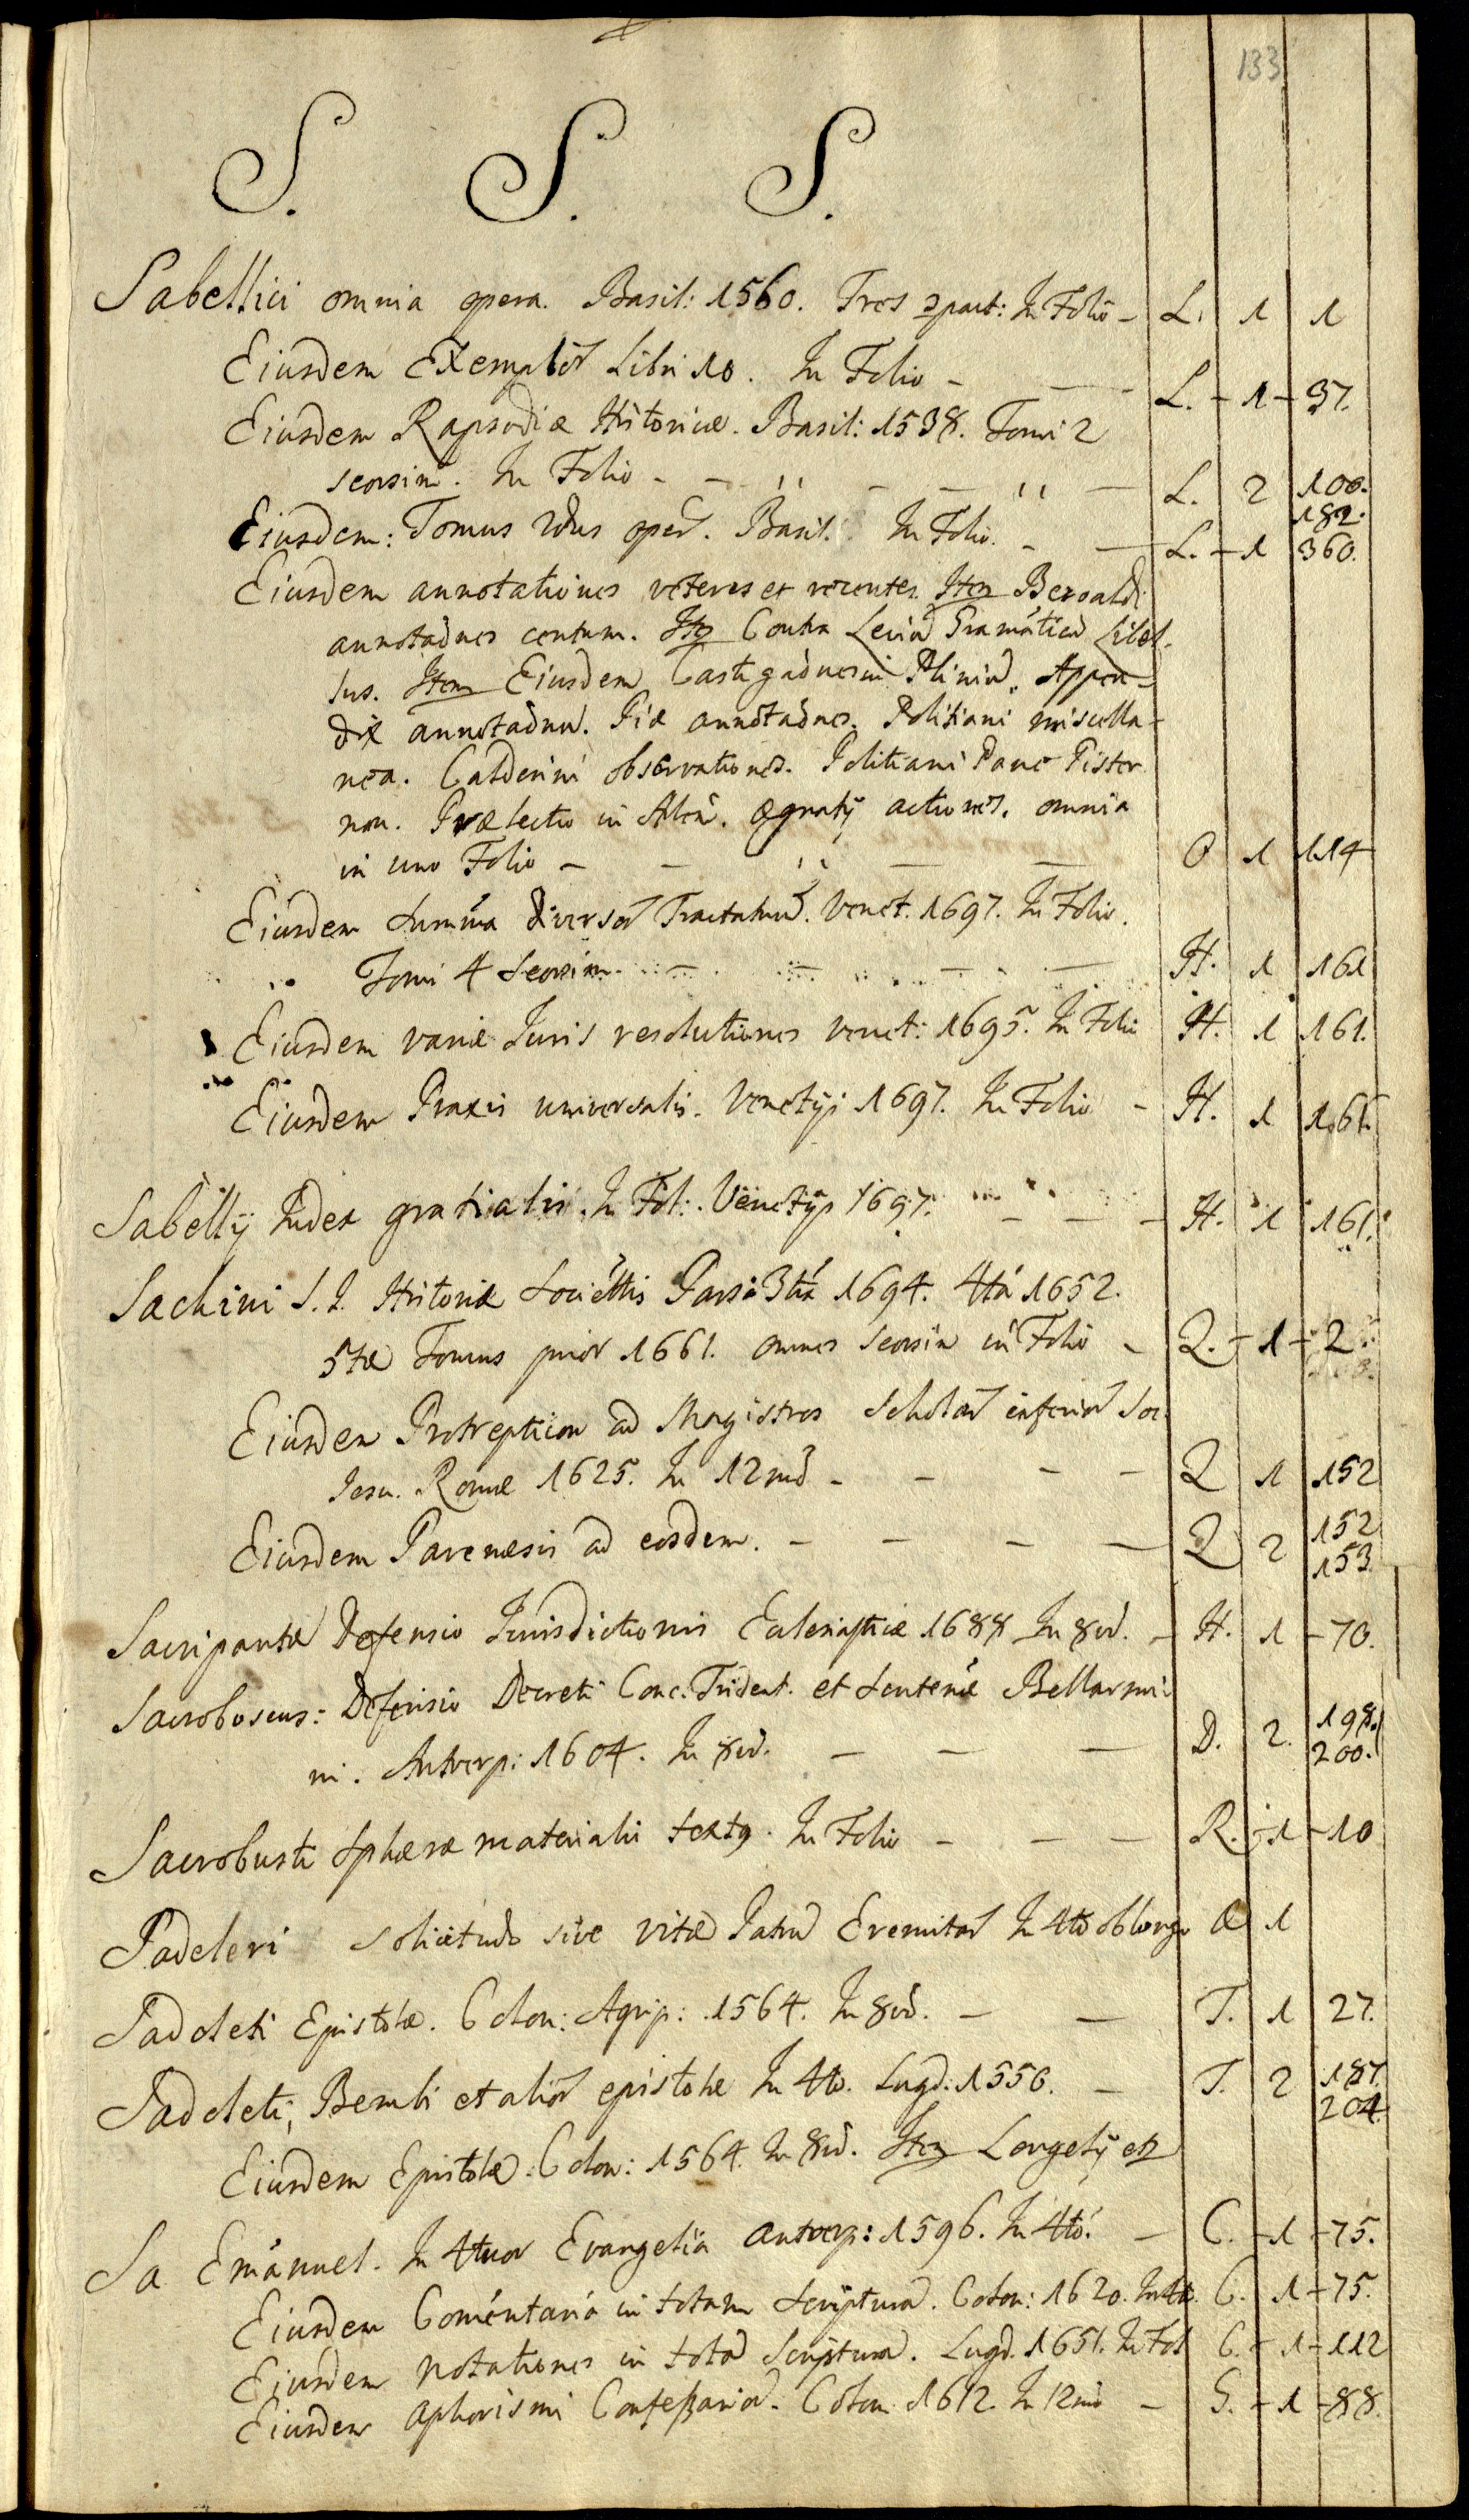 133
S. S. S.
Sabellici omnia opera. Basil: 1560. Tres part: In Folio – L. 1 1
Eiusdem Exemplor Libri 10. In Folio – — L. – 1 – 37.
Eiusdem Rapsodiæ Historicæ. Basil: 1538. Tomi 2
seorsim. In Folio – – — — — L. 2 100. 182.
Eiusdem: Tomus 2dus oper. Basil: In Folio. – — L. – 1 360.
Eiusdem annotationes veteres et recentes. Item Beroaldi
annotaones centum. Item Contra Gramáticū Libel-
lus. Item Eiusdem Castigaōnes in Pliniū. Appen-
dix annotaōnū. Piæ annotaōnes. Politiani miscella-
nea. Calderini observationes. Politiani Pane Pister
non. Prælectio in actiones. omnia
in uno Folio – — — — O 1 114
Eiusdem Summa diversor Tractatuū. Venet. 1697. In Folio.
Tomi 4 Seorsim. – – – — H. 1 161
Eiusdem variæ Juris resolutiones Venet: 1695. In Folio H. 1 161.
Eiusdem Praxis universalis. Venetijs 1697. In Folio – H. 1 161.
Sabelly Index gratialis. In Fol: Venetijs 1697. – – – H. 1 161.
Sachini S. J. Historiæ Societtis Pars 3tia 1694. 4ta 1652.
5tæ Tomus prior 1661. omnes Seorsim in Folio – Q. – 1 – 2.
Eiusdem Protrepticon ad Magistros Scholar inferior Soc.
Jesu. Romæ 1625. In 12mo – – – — Q 1 152
Eiusdem Parenæsis ad eosdem. – — – — Q 2 152 153.
Sacripantæ Defensio Jurisdictionis Eclesiasticæ 1688 In 8vo. – H. 1 – 70.
Sacroboscus: Defensio Decreti Conc. Trident. et Sentenæ Bellarmi-
ni. Antverp: 1604. In 8vo. — — — D. 2. 198. 200.
Sacrobusti Sphæræ materialis textq. In Folio – — — R. – 1 – 10
Sadeleri solicitudo sive vitæ Patrū Eremitar In 4to oblongo Æ 1
Sadoleti Epistolæ. Colon: Agrip: 1564. In 8vo. – — T. 1 27.
Sadoleti, Bembi et alior epistolæ In 4to. Lugd: 1550. – T. 2 187. 204.
Eiusdem Epistolæ: Colon: 1564. In 8vo. Item Longolij etc
Sa Emánuel. In 4tuor Evangelia Antverp: 1596. In 4tó. – C. – 1 – 75.
Eiusdem Coméntaria in totam Scripturā. Colon: 1620. In 4to. C. 1 – 75.
Eiusdem notationes in totā Scripturā. Lugd. 1651. In Fol C. – 1 – 112
Eiusdem aphorismi Confeßarior. Colon 1612. In 12mo – G. – 1 – 88.